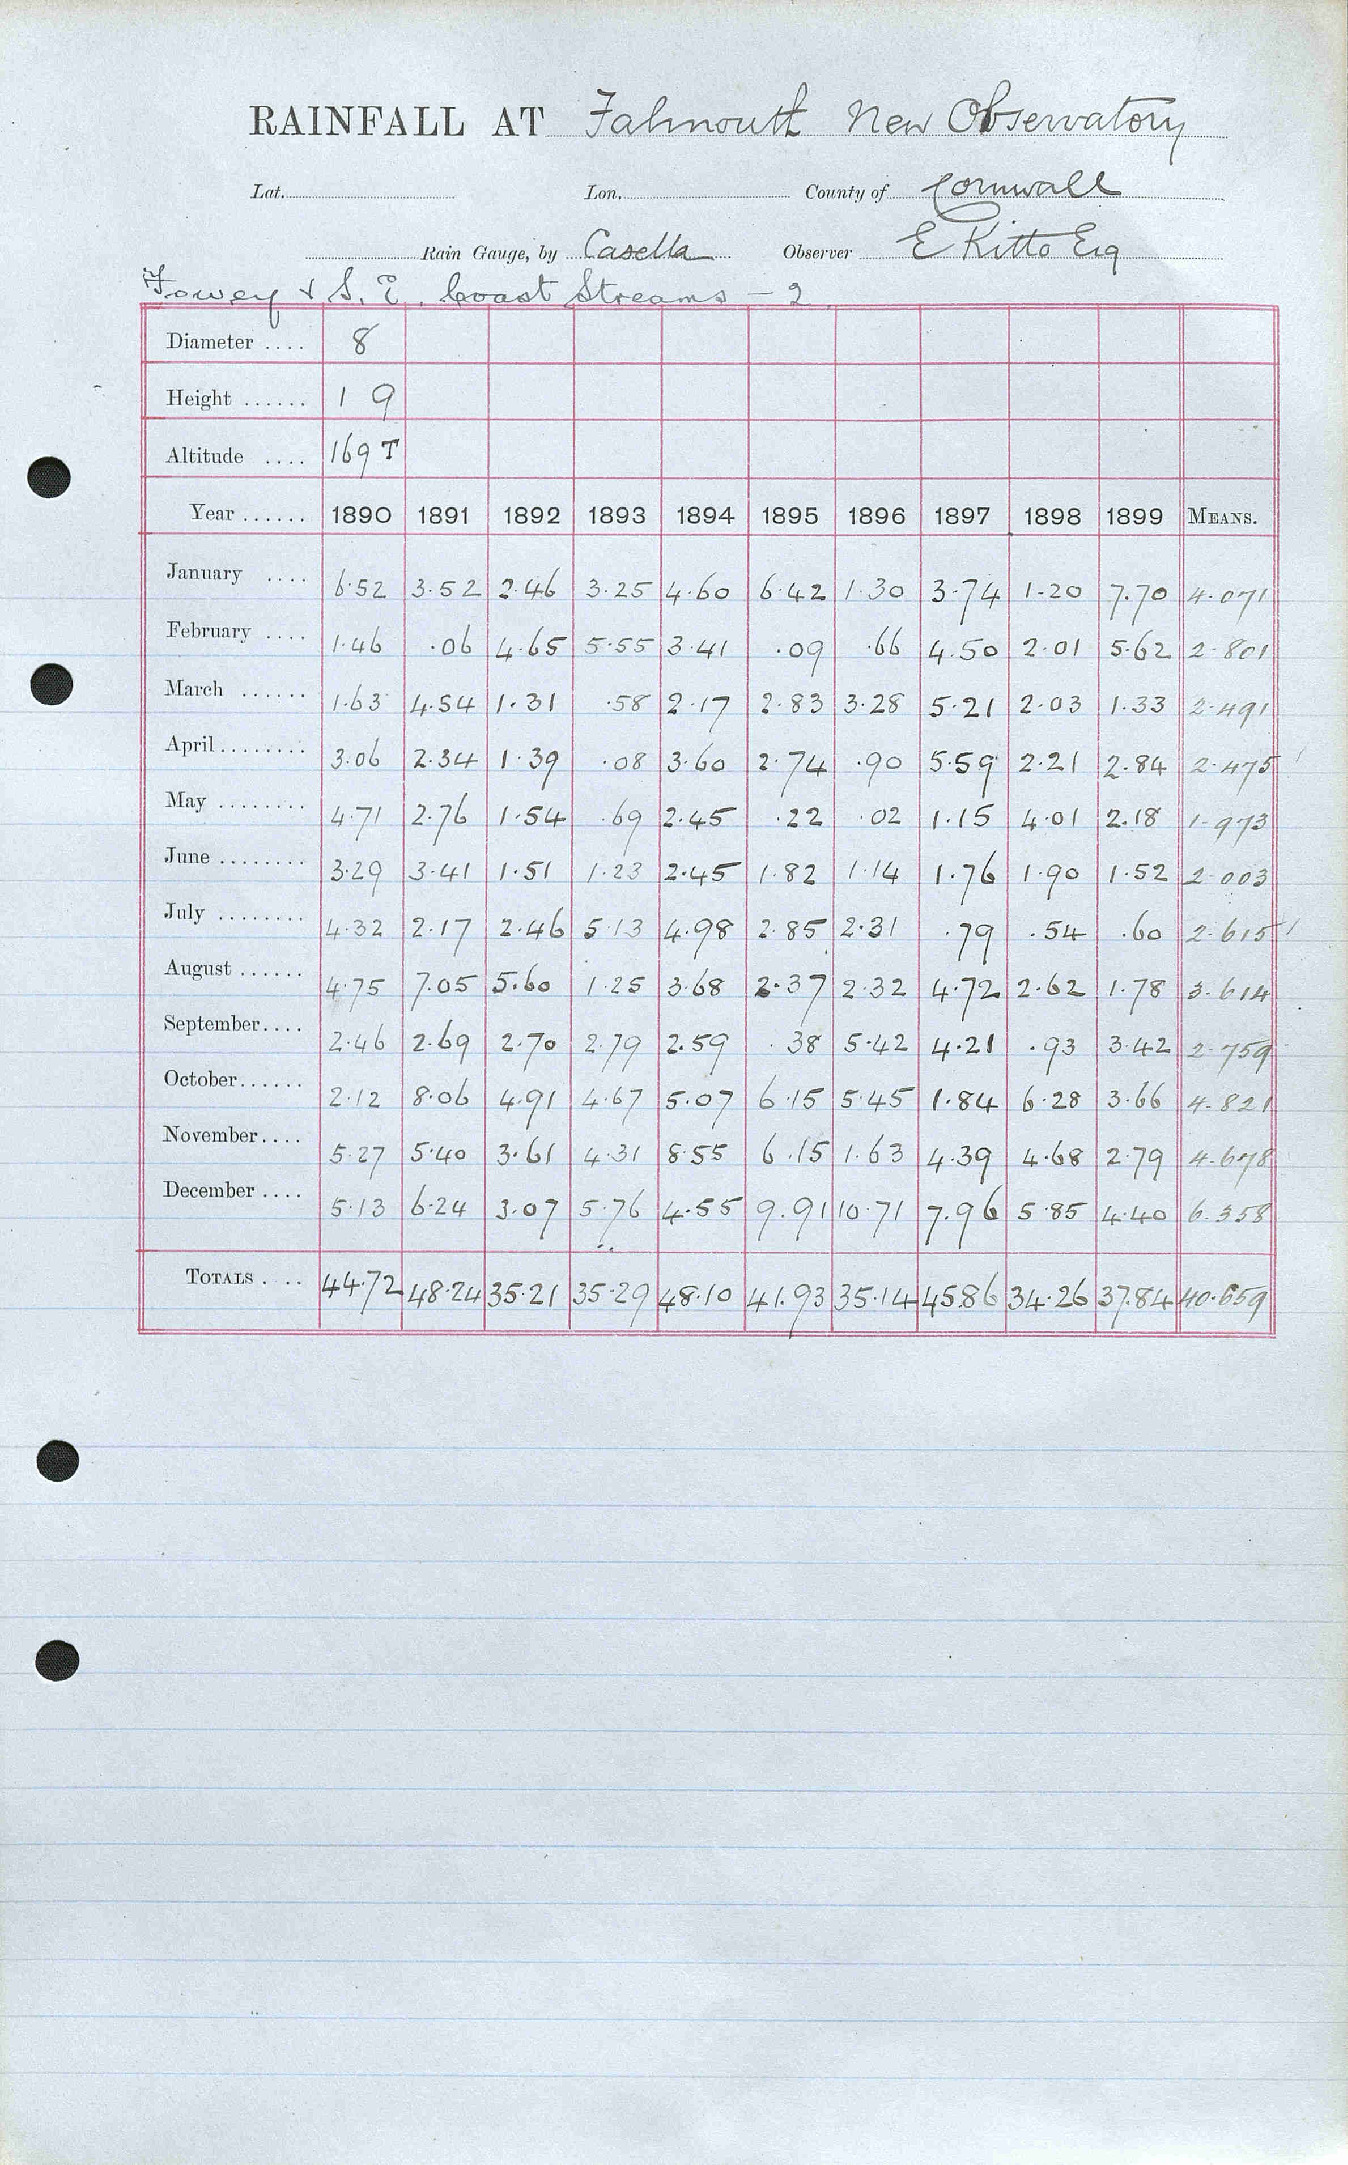 RAINFALL AT Falmouth New Observatory
Lat. Lon. County of Cornwall
Rain Gauge, by Casella Observer E Kitto Esq
Fowey & S. E. Coast Streams – 2
Diameter .... 8
Height ...... 1 9
Altitude .... 169 T
Year ...... 1890 1891 1892 1893 1894 1895 1896 1897 1898 1899 MEANS.
January .... 6.52 3.52 2.46 3.25 4.60 6.42 1.30 3.74 1.20 7.70 4.071
February .... 1.46 .06 4.65 5.55 3.41 .09 .66 4.50 2.01 5.62 2.801
March ...... 1.63 4.54 1.31 .58 2.17 2.83 3.28 5.21 2.03 1.33 2.491
April ........ 3.06 2.34 1.39 .08 3.60 2.74 .90 5.59 2.21 2.84 2.475
May ........ 4.71 2.76 1.54 .69 2.45 .22 .02 1.15 4.01 2.18 1.973
June ........ 3.29 3.41 1.51 1.23 2.45 1.82 1.14 1.76 1.90 1.52 2.003
July ........ 4.32 2.17 2.46 5.13 4.98 2.85 2.31 .79 .54 .60 2.615
August ...... 4.75 7.05 5.60 1.25 3.68 2.37 2.32 4.72 2.62 1.78 3.614
September.... 2.46 2.69 2.70 2.79 2.59 .38 5.42 4.21 .93 3.42 2.759
October...... 2.12 8.06 4.91 4.67 5.07 6.15 5.45 1.84 6.28 3.66 4.821
November.... 5.27 5.40 3.61 4.31 8.55 6.15 1.63 4.39 4.68 2.79 4.678
December .... 5.13 6.24 3.07 5.76 4.55 9.91 10.71 7.96 5.85 4.40 6.358
TOTALS .... 44.72 48.24 35.21 35.29 48.10 41.93 35.14 45.86 34.26 37.84 40.659